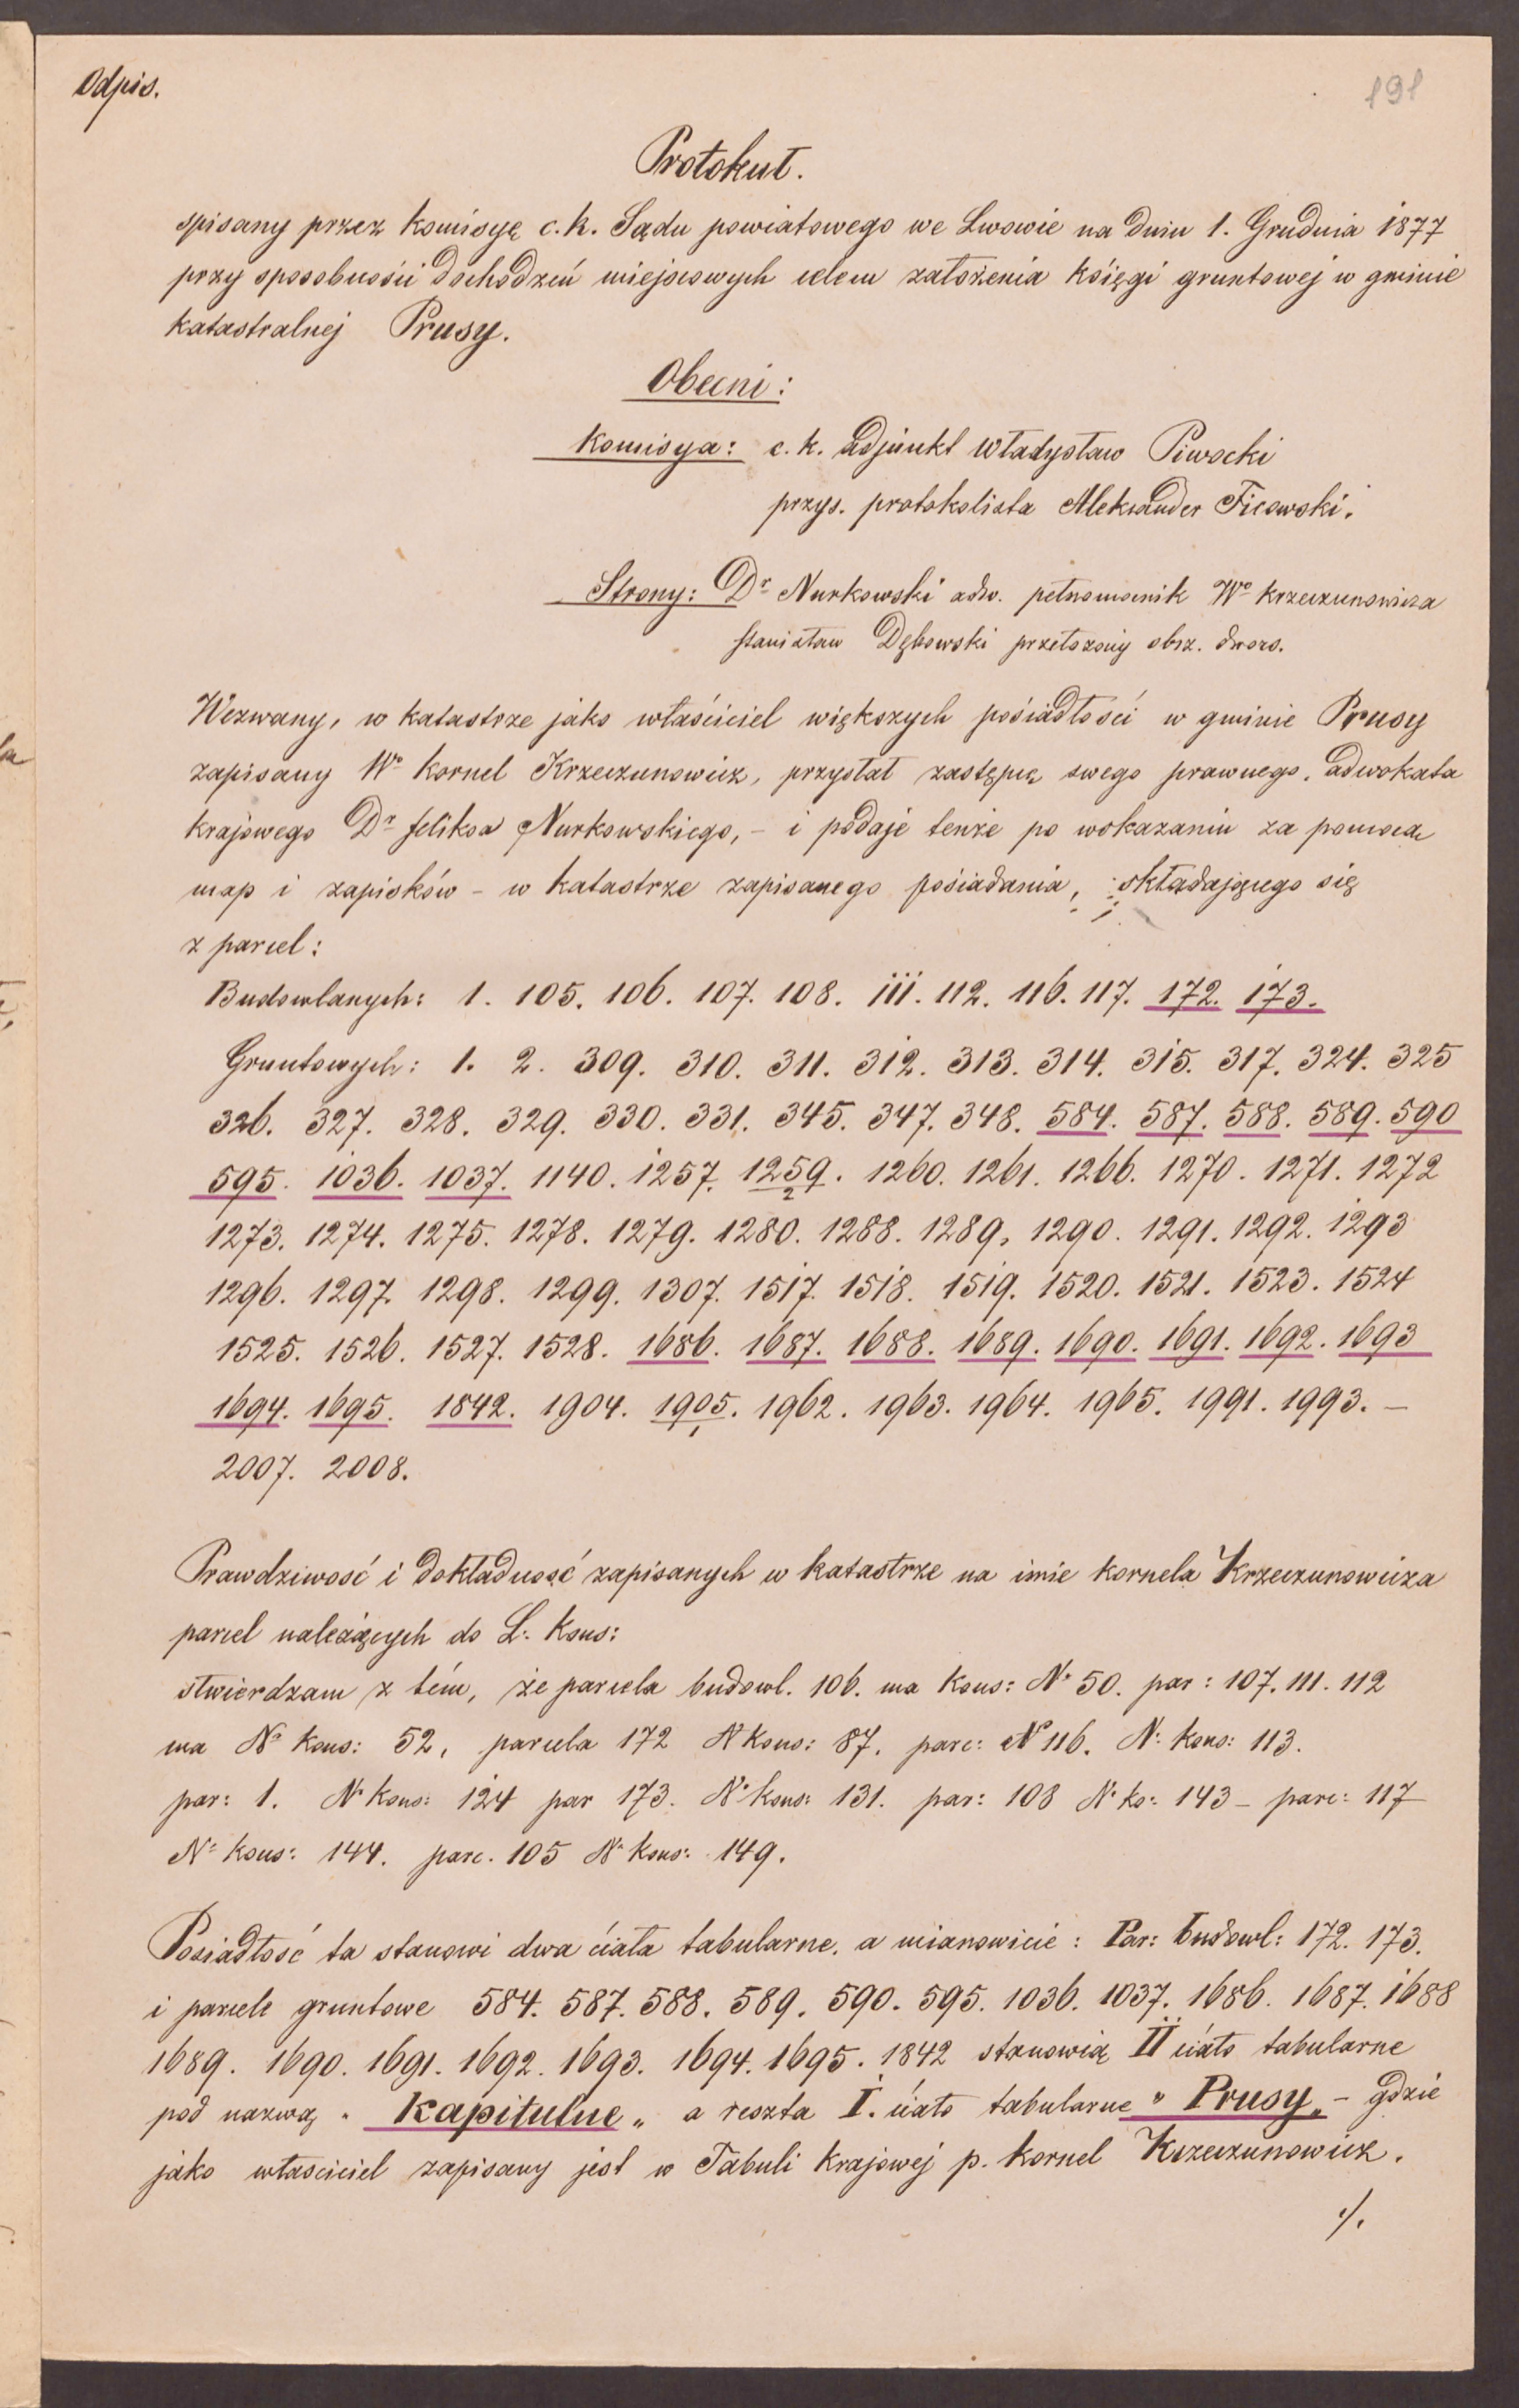 Odpis.
191
Protokuł.
spisany przez Komisyę c. k. Sądu powiatowego we Lwowie na dniu 1. Grudnia 1877
przy sposobności dochodzeń miejscowych celem założenia Księgi gruntowej w gminie
Katastralnej Prusy.
Obecni:
Komisya: c. k. adjunkt Władysław Piwocki
przys. protokolista Aleksander Ficowski.
Strony: Dr Nurkowski adw. pełnomocnik Wo Krzeczunowicza
Stanisław Dębowski przełożony obsz. dwors.
Wezwany, w katastrze jako właściciel większych posiadłości w gminie Prusy
zapisany Wo Kornel Krzeczunowicz, przysłał zastępcę swego prawnego, adwokata
krajowego Dr Feliksa Nurkowskiego, - i podaje tenże po wskazaniu za pomocą
map i zapisków - w katastrze zapisanego posiadania, składającego się
z parcel:
Budowlanych: 1. 105. 106. 107. 108. 111. 112. 116. 117. 172. 173.
Gruntowych: 1. 2. 309. 310. 311. 312. 313. 314. 315. 317. 324. 325
326. 327. 328. 329. 330. 331. 345. 347. 348. 584. 587. 588. 589. 590
595. 1036. 1037. 1140. 1257. 1259/2. 1260. 1261. 1266. 1270. 1271. 1272
1273. 1274. 1275. 1278. 1279. 1280. 1288. 1289, 1290. 1291. 1292. 1293
1296. 1297. 1298. 1299. 1307. 1517. 1518. 1519. 1520. 1521. 1523. 1524
1525. 1526. 1527. 1528. 1686. 1687. 1688. 1689. 1690. 1691. 1692. 1693
1694. 1695. 1842. 1904. 1905/1. 1962. 1963. 1964. 1965. 1991. 1993. -
2007. 2008.
Prawdziwość i dokładność zapisanych w katastrze na imie Kornela Krzeczunowicza
parcel należących do L. Kons:
stwierdzam z tém, że parcela budowl. 106. ma Kons: No 50. par: 107. 111. 112
ma No Kons: 52, parcela 172 N Kons: 87. parc: No 116. N: Kons: 113.
par: 1. No Kons: 124 par 173. No Kons: 131. par: 108 No Ko: 143 - parc: 117
No Kons: 144. parc. 105 No Kons: 149.
Posiadłość ta stanowi dwa ciała tabularne, a mianowicie: Par: budowl: 172. 173.
i parcele gruntowe 584. 587. 588. 589. 590. 595. 1036. 1037. 1686. 1687. 1688
1689. 1690. 1691. 1692. 1693. 1694. 1695. 1842 stanowią II ciało tabularne
pod nazwą "Kapitulne" a reszta I. ciało tabularne "Prusy" - gdzie
jako właściciel zapisany jest w Tabuli Krajowej p. Kornel Krzeczunowicz.
./.